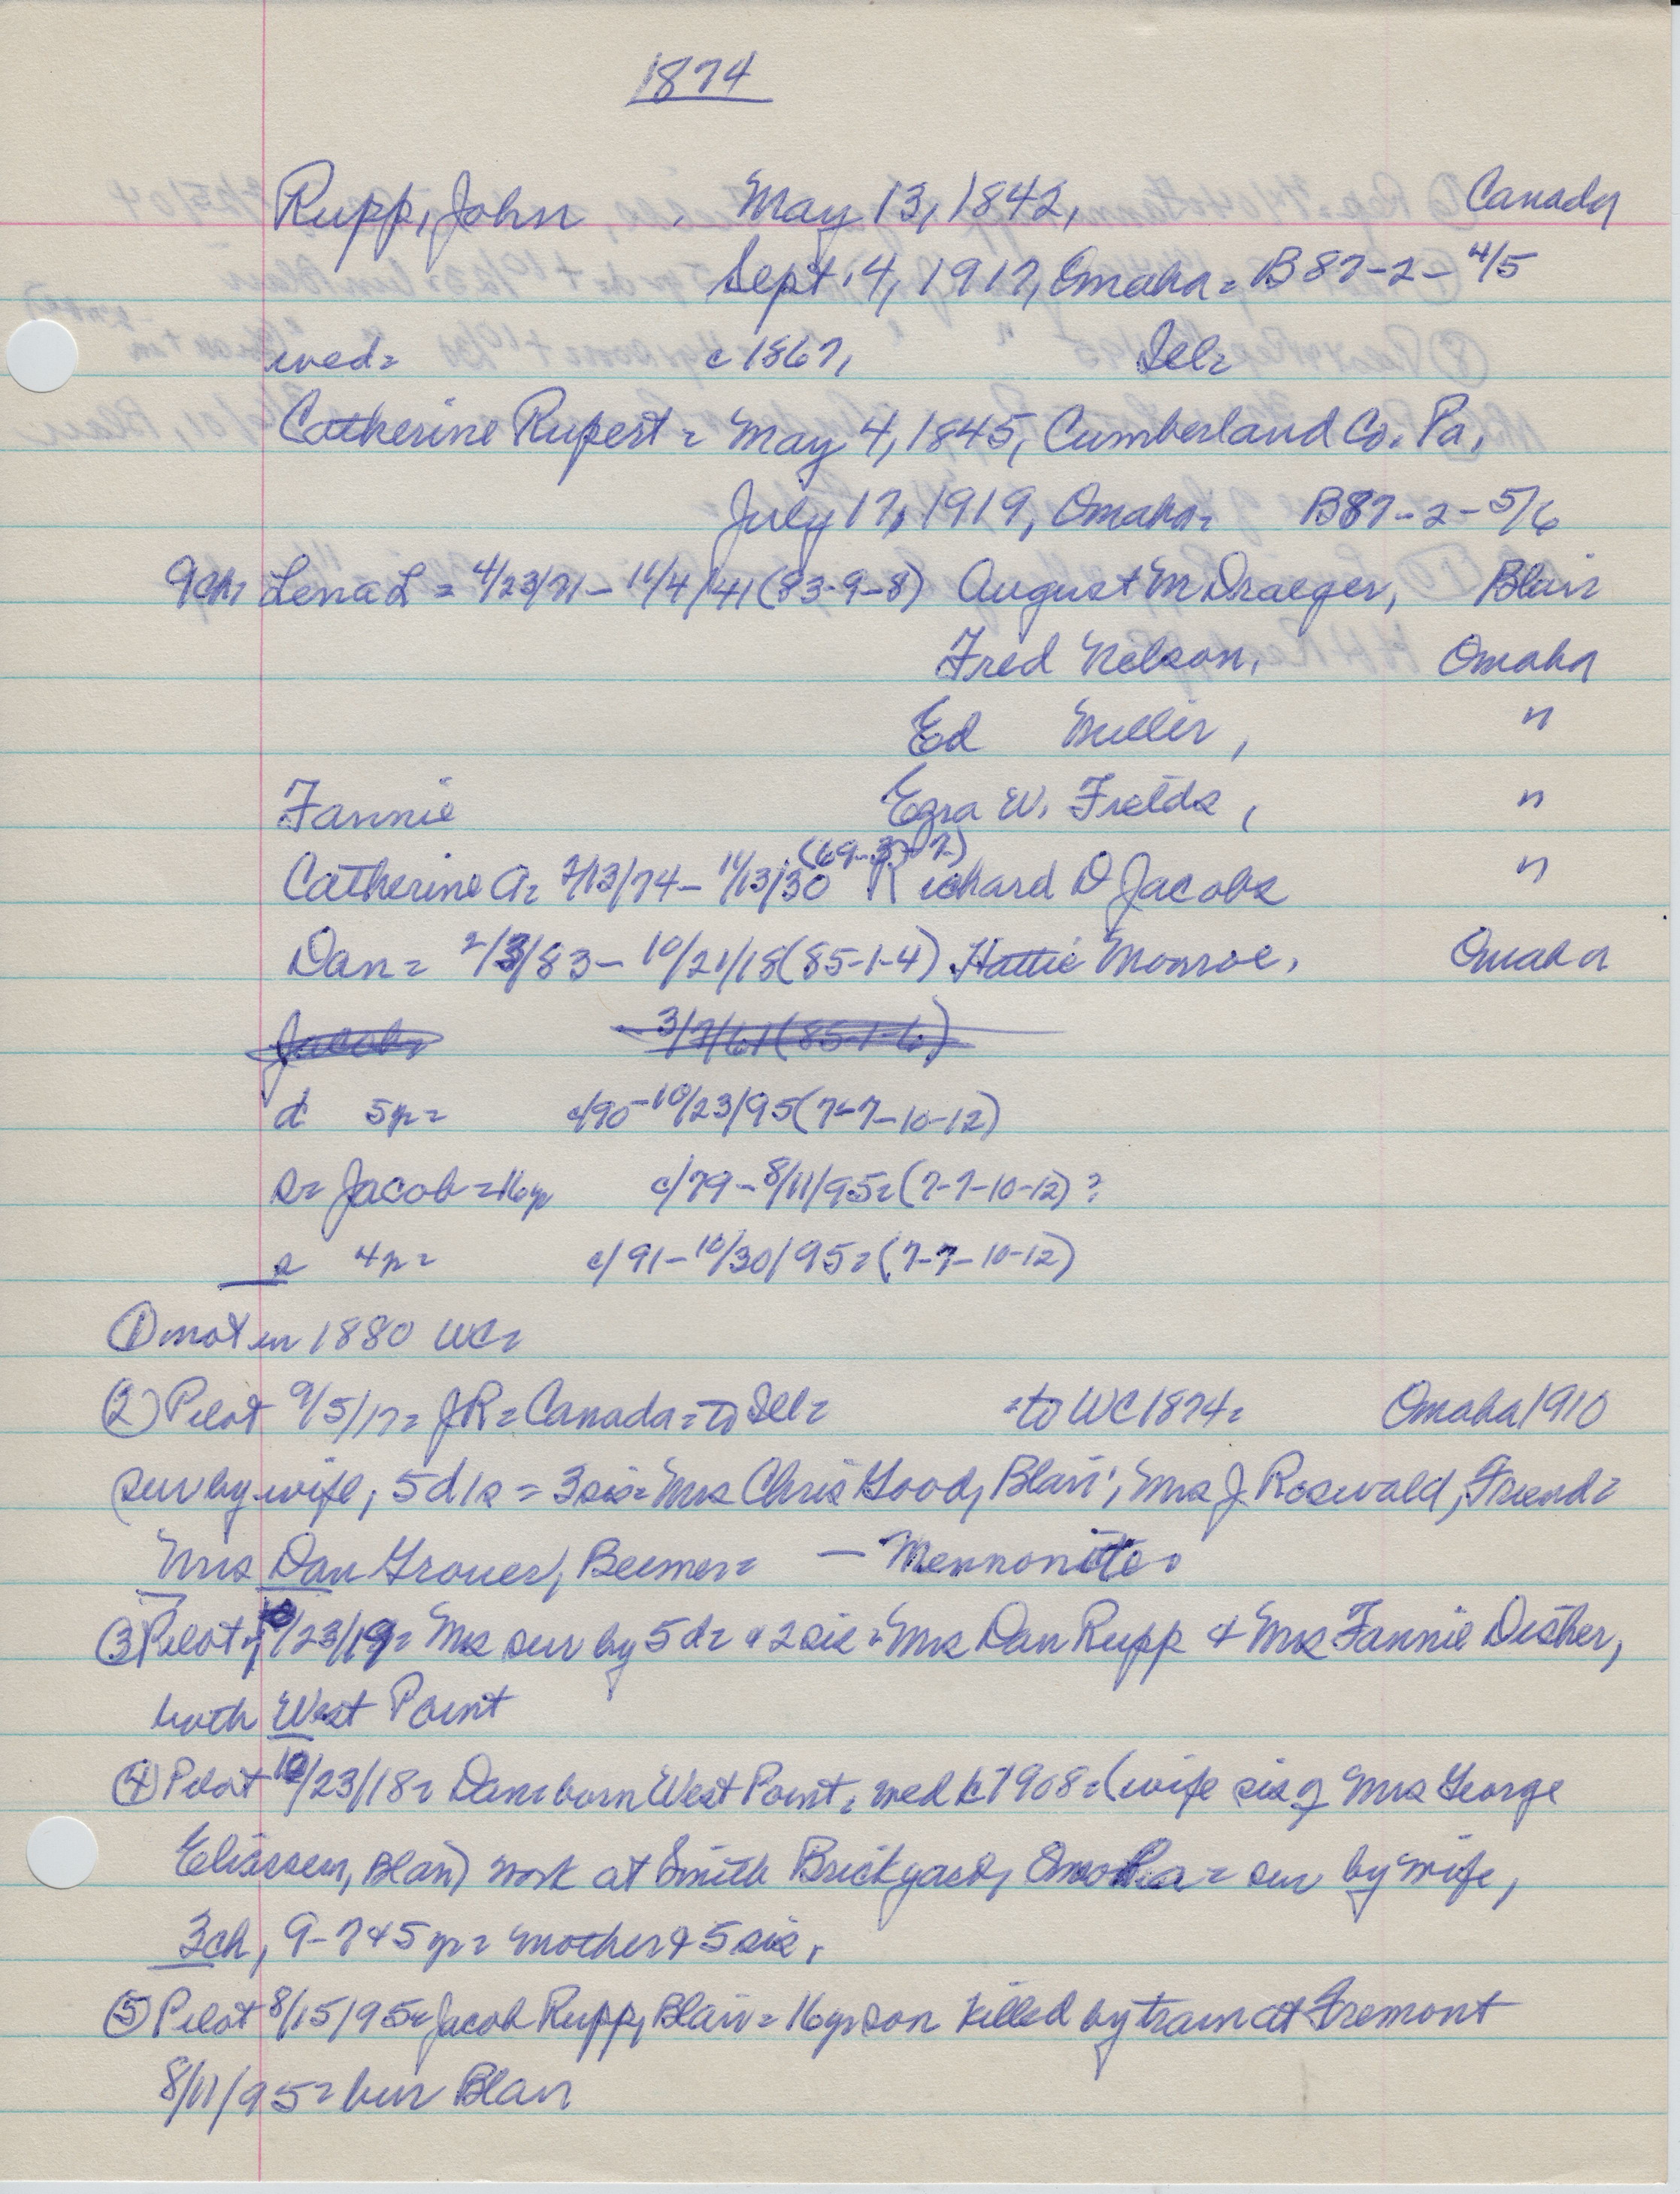 1874
Rupp, John . May 13, 1842, Canada
Sept. 4, 1917, Omaha = B87-2-4/5
wed = c 1867, Ill =
Catherine Rupert = May 4, 1845, Cumberland Co. Pa,
July 17, 1919, Omaha = B87-2-5/6
9 ch, Lena L = 4/23/71 - 11/4/41 (83-9-8) August M Draeger, Blair
Fred Nelson, Omaha
Ed Miller, "
Fannie Ezra W. Fields, "
(69-3-7)
Catherine A = 7/13/74 - 11/13/30 Richard D Jacobs "
Dan = 2/3/83 - 10/21/18 (85-1-4) Hattie Monroe, Omaha
Jacob 3/7/61 (85-1-6)
d 5yr = c/90 - 10/23/95 (7-7-10-12)
s = Jacob = 16yr c/79 - 8/11/95 = (7-7-10-12) ?
s 4yr = c/91 - 10/30/95 = (7-7-10-12)
① not in 1880 WC =
② Pilot 9/5/17 = JR = Canada = to Ill = = to WC 1874 = Omaha 1910
sur by wife, 5 d 1 s = 3 sis = Mrs Chris Good, Blair; Mrs J. Roswald, Friend =
Mrs Dan Grouer, Beemer = — Mennonite.
③ Pilot 7/23/19 = Mrs sur by 5 d = & 2 sis = Mrs Dan Rupp & Mrs Fannie Disher,
both West Point
④ Pilot 10/23/18 = Dan = born West Point = wed 1908 = (wife sis of Mrs George
Eliassen, Blair) work at Smith Brickyard, Omaha = sur by wife,
3 ch, 9-7 & 5 yr = mother & 5 sis.
⑤ Pilot 8/15/95 = Jacob Rupp, Blair = 16yr son killed by train at Fremont
8/11/95 = bur Blair